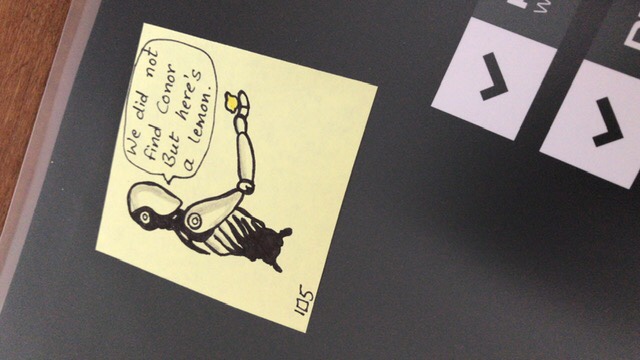 We did not
find Conor
But here's
a lemon.
105